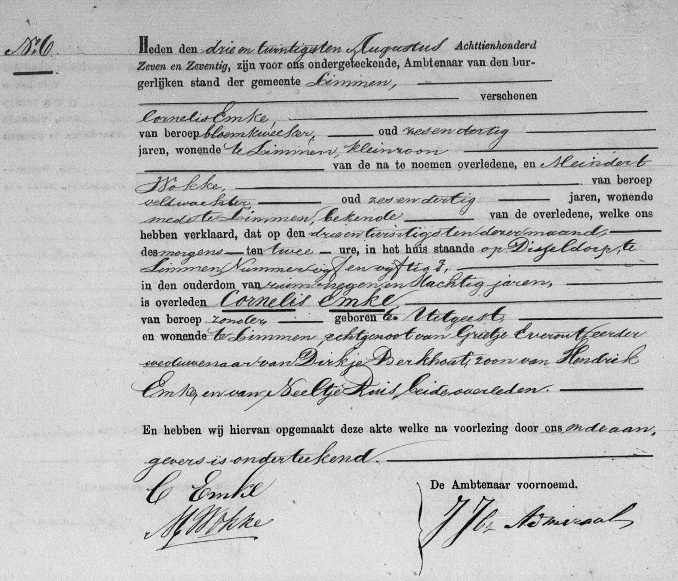 No 6.
Heden den drie en twintigsten Augustus Achttienhonderd
Zeven en Zeventig, zijn voor ons ondergeteekende, Ambtenaar van den bur-
gerlijken stand der gemeente Limmen,
verschenen
Cornelis Emke,
van beroep bloemkweeker, oud zes en dertig
jaren, wonende te Limmen, kleinzoon
van de na te noemen overledene, en Meindert
Wokke, van beroep
veldwachter, oud zes en dertig jaren, wonende
mede te Limmen, bekende van de overledene, welke ons
hebben verklaard, dat op den drie en twintigsten dezer maand,
des morgens ten twee ure, in het huis staande op Disseldorp, te
Limmen, Nummer vijf en vijftig,
in den ouderdom van ruim negen en tachtig jaren,
is overleden Cornelis Emke,
van beroep zonder geboren te Uitgeest,
en wonende te Limmen, echtgenoot van Grietje Everout, eerder
weduwenaar van Dirkje Berkhout, zoon van Hendrik
Emke, en van Neeltje Kuis, beide overleden.
En hebben wij hiervan opgemaakt deze akte welke na voorlezing door ons en de aan,
gevers is onderteekend.
De Ambtenaar voornoemd.
C Emke
M Wokke
J Jbz Admiraal